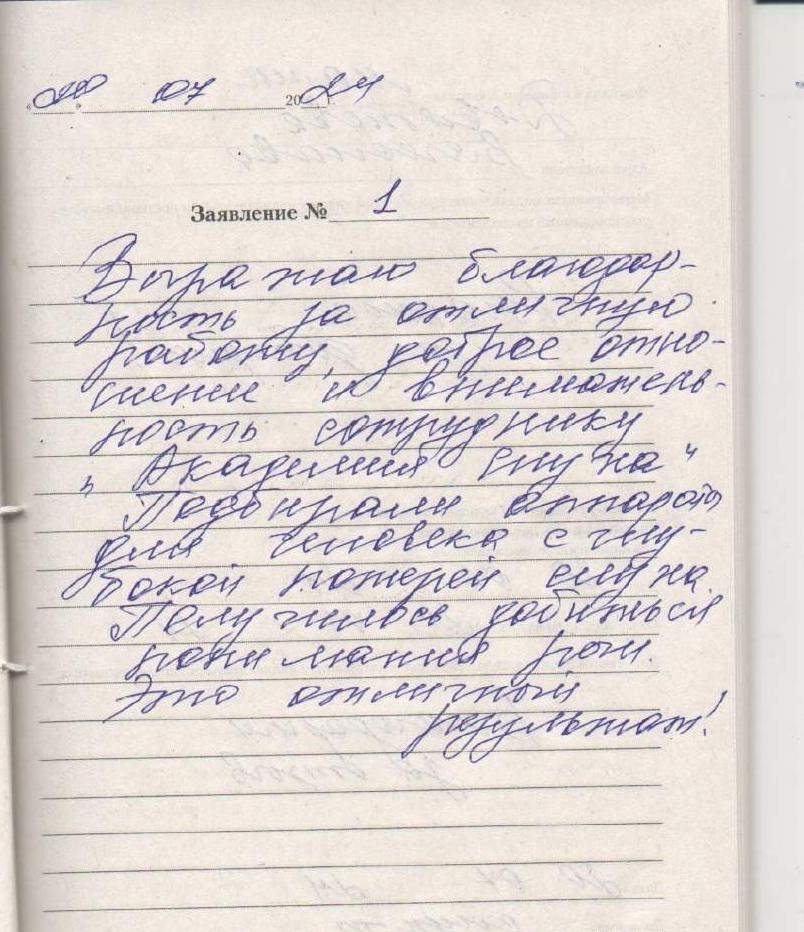 07 2024
Заявление № 1
Выражаю благодар-
ность за отличную
работу, доброе отно-
шение и вниматель-
ность сотруднику
„Академия слуха"
Подбирали аппараты
для человека с глу-
бокой потерей слуха.
Получилось добиться
понимания речи.
Это отличный
результат!